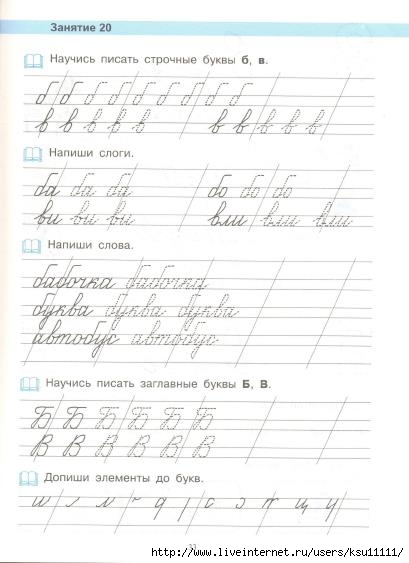 Занятие 20
Научись писать строчные буквы б, в.
б б б б б б б б б
в в в в в в в в в в
Напиши слоги.
ба ба ба бо бо бо
ви ви ви вли вли вли
Напиши слова.
бабочка бабочка
буква буква буква
автобус автобус
Научись писать заглавные буквы Б, В.
Б Б Б Б Б Б
В В В В В В
Допиши элементы до букв.
http://www.liveinternet.ru/users/ksu11111/